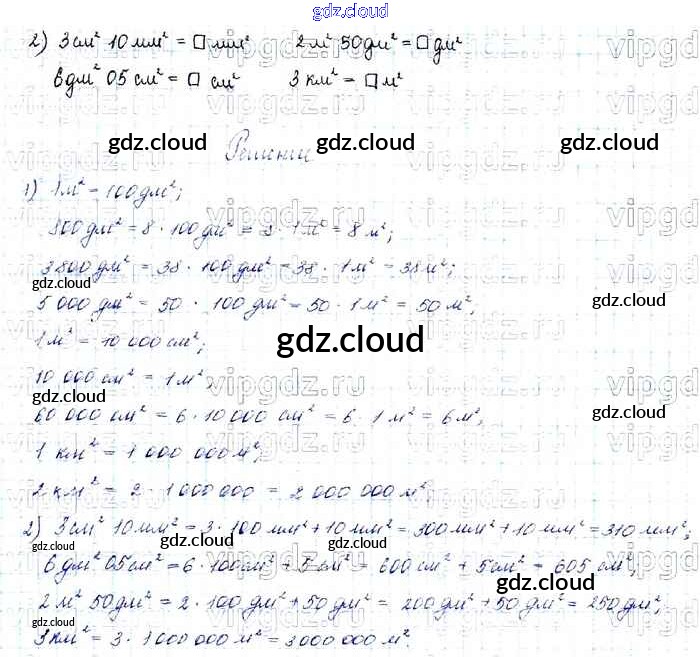 gdz.cloud
2) 3 см² 10 мм² = □ мм² 2 м² 50 дм² = □ дм²
6 дм² 05 см² = □ см² 3 км² = □ м²
gdz.cloud gdz.cloud gdz.cloud
Решение
1) 1 м² = 100 дм²;
800 дм² = 8 · 100 дм² = 8 · 1 м² = 8 м²;
3800 дм² = 38 · 100 дм² = 38 · 1 м² = 38 м²;
gdz.cloud
5 000 дм² = 50 · 100 дм² = 50 · 1 м² = 50 м²;
gdz.cloud
1 м² = 10 000 см²;
gdz.cloud
10 000 см² = 1 м²
gdz.cloud
60 000 см² = 6 · 10 000 см² = 6 · 1 м² = 6 м²;
gdz.cloud
1 км² = 1 000 000 м²;
2 км² = 2 · 1 000 000 = 2 000 000 м²
2) 3 см² 10 мм² = 3 · 100 мм² + 10 мм² = 300 мм² + 10 мм² = 310 мм²;
gdz.cloud gdz.cloud gdz.cloud
6 дм² 05 см² = 6 · 100 см² + 5 см² = 600 см² + 5 см² = 605 см²;
gdz.cloud
2 м² 50 дм² = 2 · 100 дм² + 50 дм² = 200 дм² + 50 дм² = 250 дм²;
gdz.cloud
3 км² = 3 · 1 000 000 м² = 3 000 000 м².